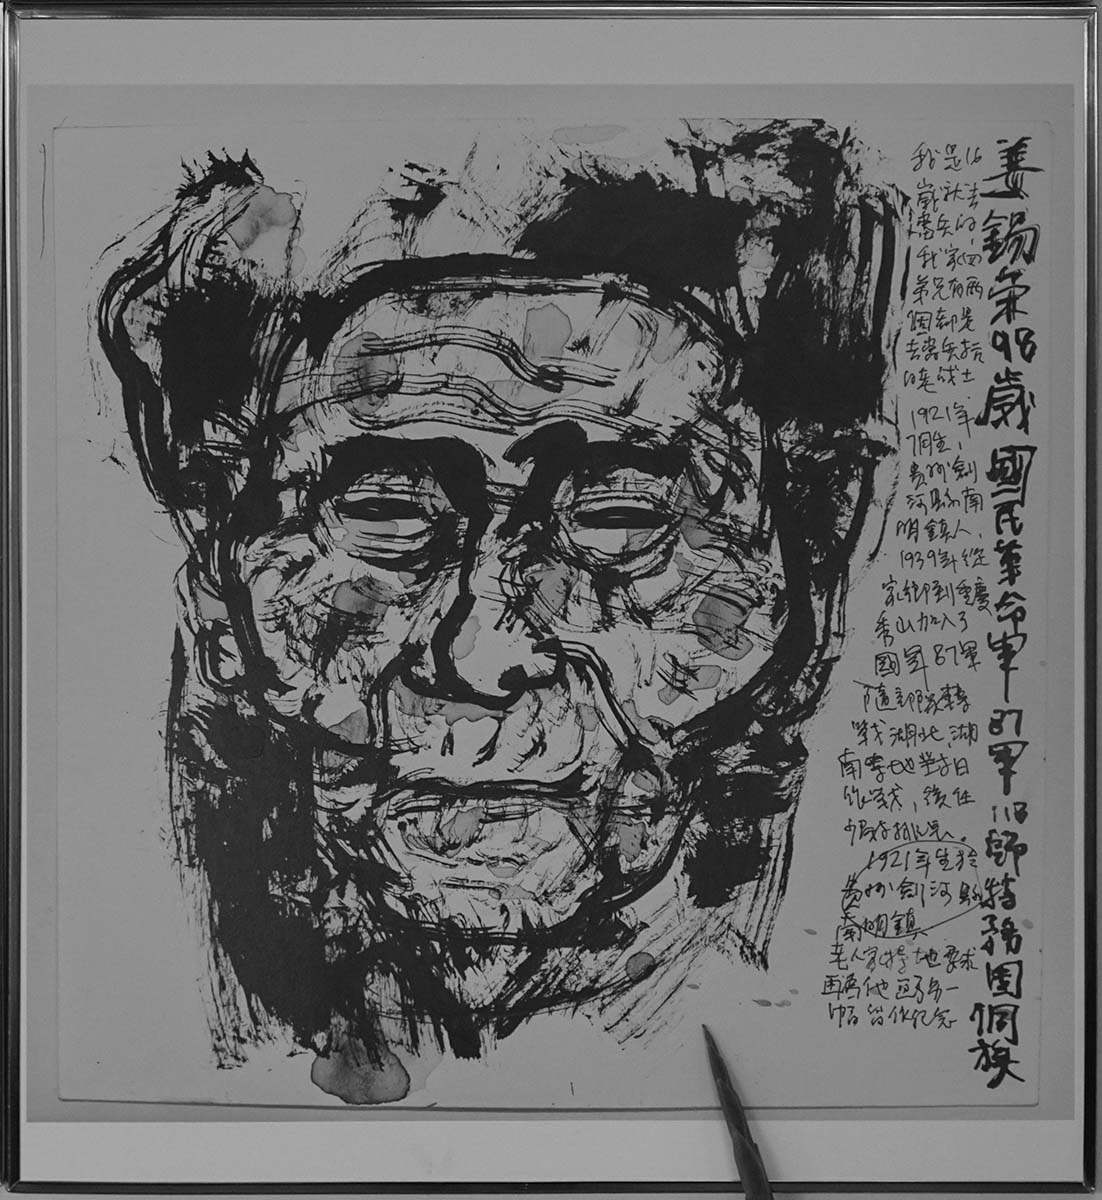 姜錫宋98歲國民革命軍87軍118師特務團侗族
我是16
歲就去
當兵的，
我家四
弟兄有两
個都是
去當兵抗
日老战士
1921年
7月生，
贵州劍
河縣南
明鎮人，
1939年從
家鄉到重慶
秀山加入了
國軍87軍
隨部隊轉
戰湖北、湖
南等地對日
作战，後任
少尉排長。
1921年生於
贵州劍河縣
南明鎮
老人家特地要求
再爲他画了另一
幅留作纪念